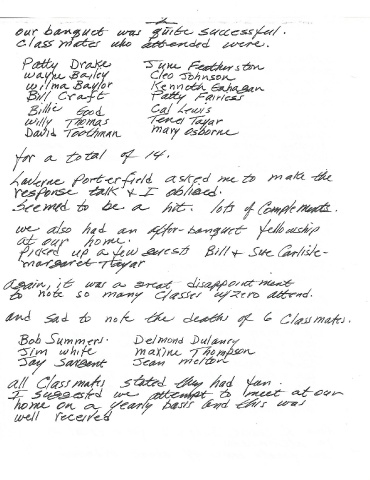 2
our banquet was quite successful.
Classmates who attended were.
Patty Drake June Featherston
Wayne Bailey Cleo Johnson
Wilma Baylor Kenneth Gahagan
Bill Craft Patty Fairless
Billie Good Cal Lewis
Willy Thomas Tenel Tayar
David Toothman Mary Osborne
for a total of 14.
Laverne Porterfield asked me to make the
response talk & I obliged.
Seemed to be a hit. lots of Complements.
we also had an after-banquet fellowship
at our home.
Picked up a few guests Bill & Sue Carlisle-
Margaret Tayar
Again, it was a great disappointment
to note so many Classes w/zero attend.
and sad to note the deaths of 6 Classmates.
Bob Summers. Delmond Dulaney
Jim White Maxine Thompson
Jay Sargent Jean Melton
all Classmates stated they had fun.
I suggested we attempt to meet at our
home on a yearly basis and this was
well received